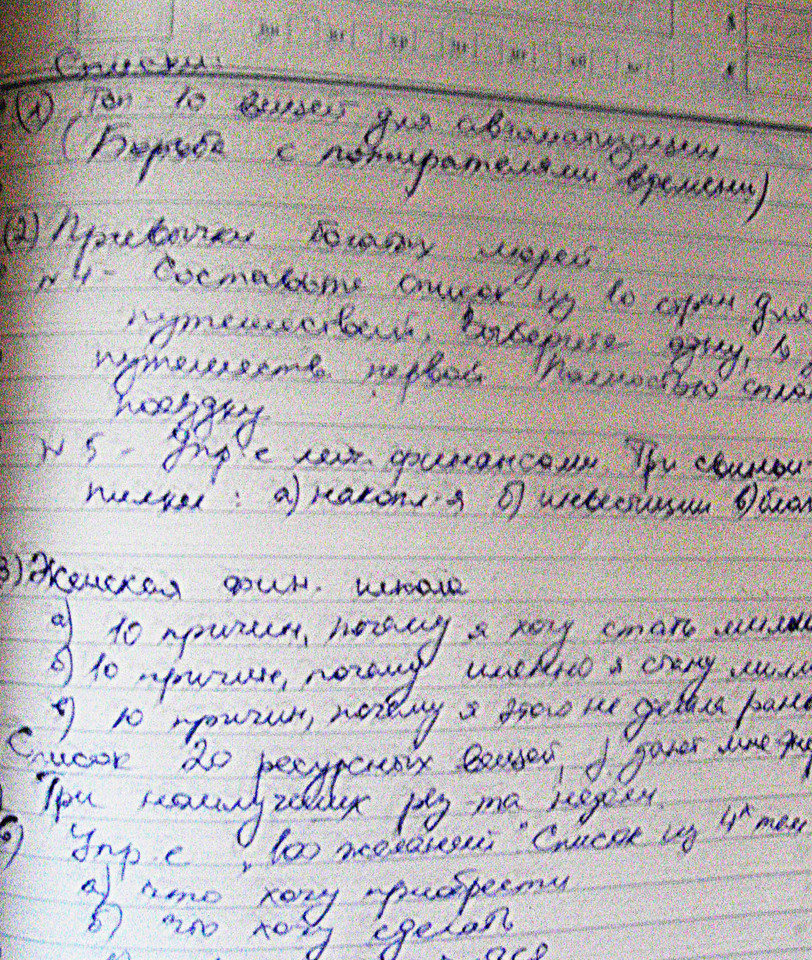 Списки:
(1) Топ-10 вещей для автоматизации
(Борьба с пожирателями времени)
(2) Привычки богатых людей
N 4 - Составьте список из 10 стран для
путешествий. Выберите одну, в
путешеств. первой Полностью
поездку
N 5 - Упр. с личн. финансами. Три
пилки: а) накопл-я б) инвестиции в)
3) Женская фин. школа
а) 10 причин, почему я хочу стать
б) 10 причин, почему именно я стану
в) 10 причин, почему я этого не делала
Список 20 ресурсных вещей, дают мне
Три наилучших рез-та недели.
6) Упр. с "100 желаний" Список из 4х тем
а) что хочу приобрести
б) что хочу сделать